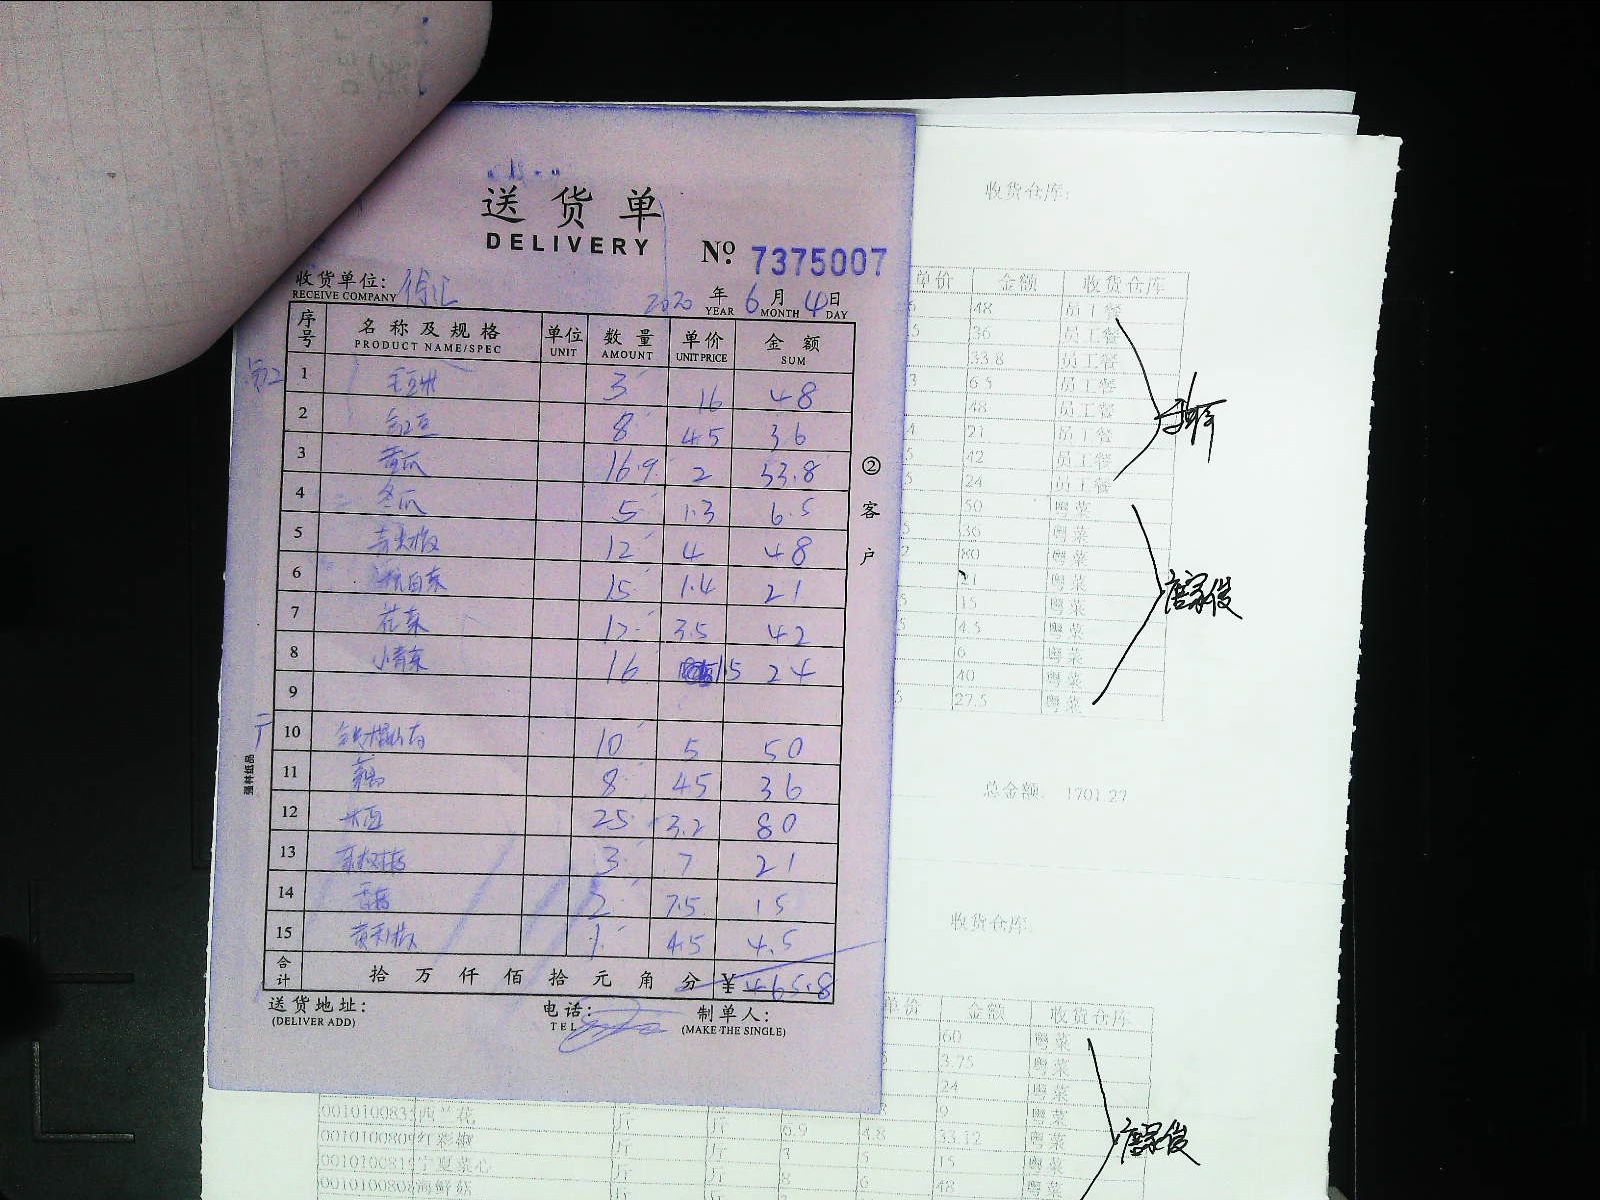 送货单
DELIVERY
№ 7375007
收货单位:
RECEIVE COMPANY
2020 年 6 月 4 日
YEAR MONTH DAY
序号 名称及规格 单位 数量 单价 金额
PRODUCT NAME/SPEC UNIT AMOUNT UNIT PRICE SUM
1 毛豆米 3 16 48
2 豇豆 8 4.5 36
3 黄瓜 16.9 2 33.8
4 冬瓜 5 1.3 6.5
5 12 4 48
6 15 1.4 21
7 花菜 12 3.5 42
8 小青菜 16 1.5 24
9
10 铁棍山药 10 5 50
11 8 4.5 36
12 25 3.2 80
13 3 7 21
14 2 7.5 15
15 1 4.5 4.5
合计 拾 万 仟 佰 拾 元 角 分 ¥ 465.8
送货地址:
(DELIVER ADD)
电话:
TEL
制单人:
(MAKE THE SINGLE)
② 客户
强林纸品
收货仓库:
单价 金额 收货仓库
48 员工餐
36 员工餐
33.8 员工餐
6.5 员工餐
48 员工餐
21 员工餐
42 员工餐
24 员工餐
50 粤菜
36 粤菜
80 粤菜
21 粤菜
15 粤菜
4.5 粤菜
6 粤菜
40 粤菜
27.5 粤菜
唐家俊
总金额: 1701.27
收货仓库:
单价 金额 收货仓库
60 粤菜
3.75 粤菜
24 粤菜
西兰花 斤 斤 9 粤菜
红彩椒 斤 斤 6.9 4.8 33.12 粤菜
宁夏菜心 斤 斤 3 5 15 粤菜
海鲜菇 斤 斤 8 6 48 粤菜
唐家俊